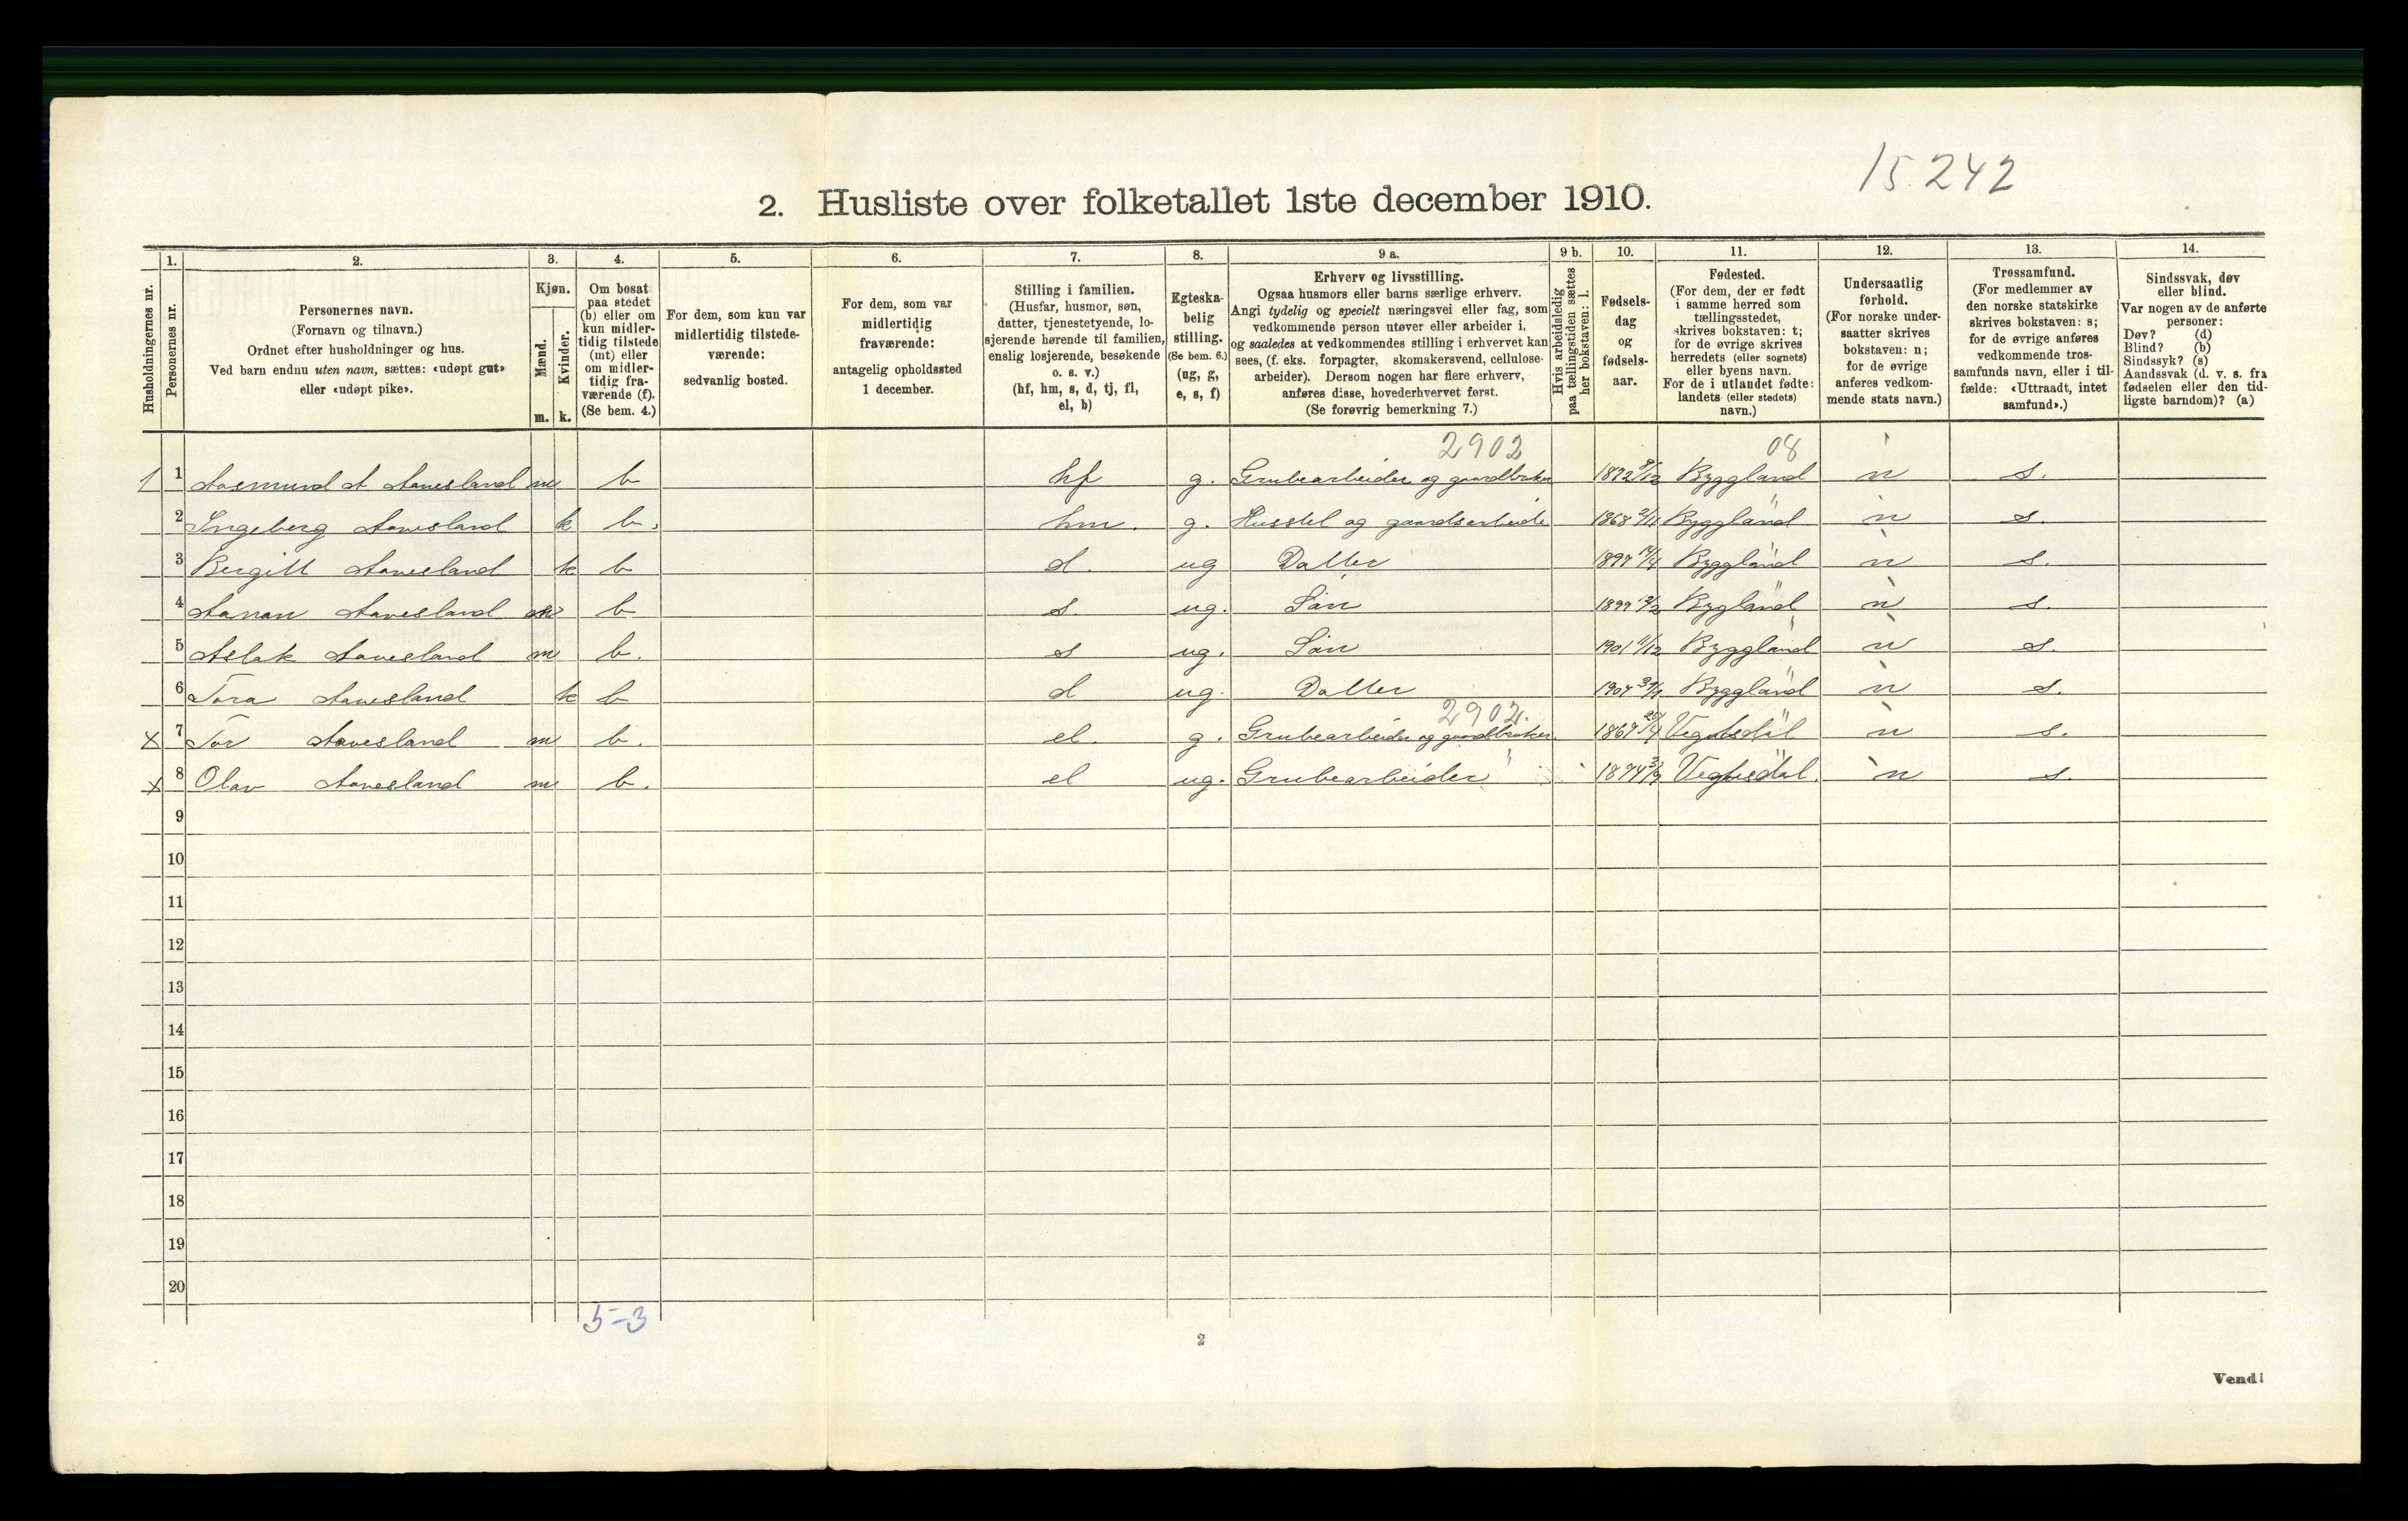 15242
2. Husliste over folketallet 1ste december 1910.
Husholdningernes nr.
1.
Personernes nr.
2.
Personernes navn.
(Fornavn og tilnavn.)
Ordnet efter husholdninger og hus.
Ved barn endnu uten navn, sættes: «udøpt gut»
eller «udøpt pike».
3.
Kjøn.
Mænd.
Kvinder.
m. k.
4.
Om bosat
paa stedet
(b) eller om
kun midler-
tidig tilstede
(mt) eller
om midler-
tidig fra-
værende (f).
(Se bem. 4.)
5.
For dem, som kun var
midlertidig tilstede-
værende:
sedvanlig bosted.
6.
For dem, som var
midlertidig
fraværende:
antagelig opholdssted
1 december.
7.
Stilling i familien.
(Husfar, husmor, søn,
datter, tjenestetyende, lo-
sjerende hørende til familien,
enslig losjerende, besøkende
o. s. v.)
(hf, hm, s, d, tj, fl,
el, b)
8.
Egteska-
belig
stilling.
(Se bem. 6.)
(ug, g,
e, s, f)
9 a.
Erhverv og livsstilling.
Ogsaa husmors eller barns særlige erhverv.
Angi tydelig og specielt næringsvei eller fag, som
vedkommende person utøver eller arbeider i,
og saaledes at vedkommendes stilling i erhvervet kan
sees, (f. eks. forpagter, skomakersvend, cellulose-
arbeider). Dersom nogen har flere erhverv,
anføres disse, hovederhvervet først.
(Se forøvrig bemerkning 7.)
9 b.
Hvis arbeidsledig
paa tællingstiden sættes
her bokstaven: l.
10.
Fødsels-
dag
og
fødsels-
aar.
11.
Fødested.
(For dem, der er født
i samme herred som
tællingsstedet,
skrives bokstaven: t;
for de øvrige skrives
herredets (eller sognets)
eller byens navn.
For de i utlandet fødte:
landets (eller stedets)
navn.)
12.
Undersaatlig
forhold.
(For norske under-
saatter skrives
bokstaven: n;
for de øvrige
anføres vedkom-
mende stats navn.)
13.
Trossamfund.
(For medlemmer av
den norske statskirke
skrives bokstaven: s;
for de øvrige anføres
vedkommende tros-
samfunds navn, eller i til-
fælde: «Uttraadt, intet
samfund».)
14.
Sindssvak, døv
eller blind.
Var nogen av de anførte
personer:
Døv? (d)
Blind? (b)
Sindssyk? (s)
Aandssvak (d. v. s. fra
fødselen eller den tid-
ligste barndom)? (a)
2902 08
1 1 Aasmund A Aanesland m b hf g. Grubearbeider og gaardbruker 1872 9/12 Byggland n s.
2 Ingeberg Aanesland k b. hm. g. Husstel og gaardsarbeide 1868 2/11 Byggland n s.
3 Bergitt Aanesland k b d. ug Datter 1897 14/4 Byggland n s.
4 Aanan Aanesland m b s. ug. Søn 1899 Bygland n s.
5 Aslak Aanesland m b. s ug. Søn 1901 11/12 Byggland n s.
6 Tora Aanesland k b d ug. Datter 1907 Byggland n s.
2902.
x 7 Tor Aanesland m b. el. g. Grubearbeider og gaardbruker. 1867 25/4 Vegusdal n s.
x 8 Olav Aanesland m b. el ug. Grubearbeider 1874 3/9 Vegusdal. n s.
9
10
11
12
13
14
15
16
17
18
19
20
5-3
2
Vend!